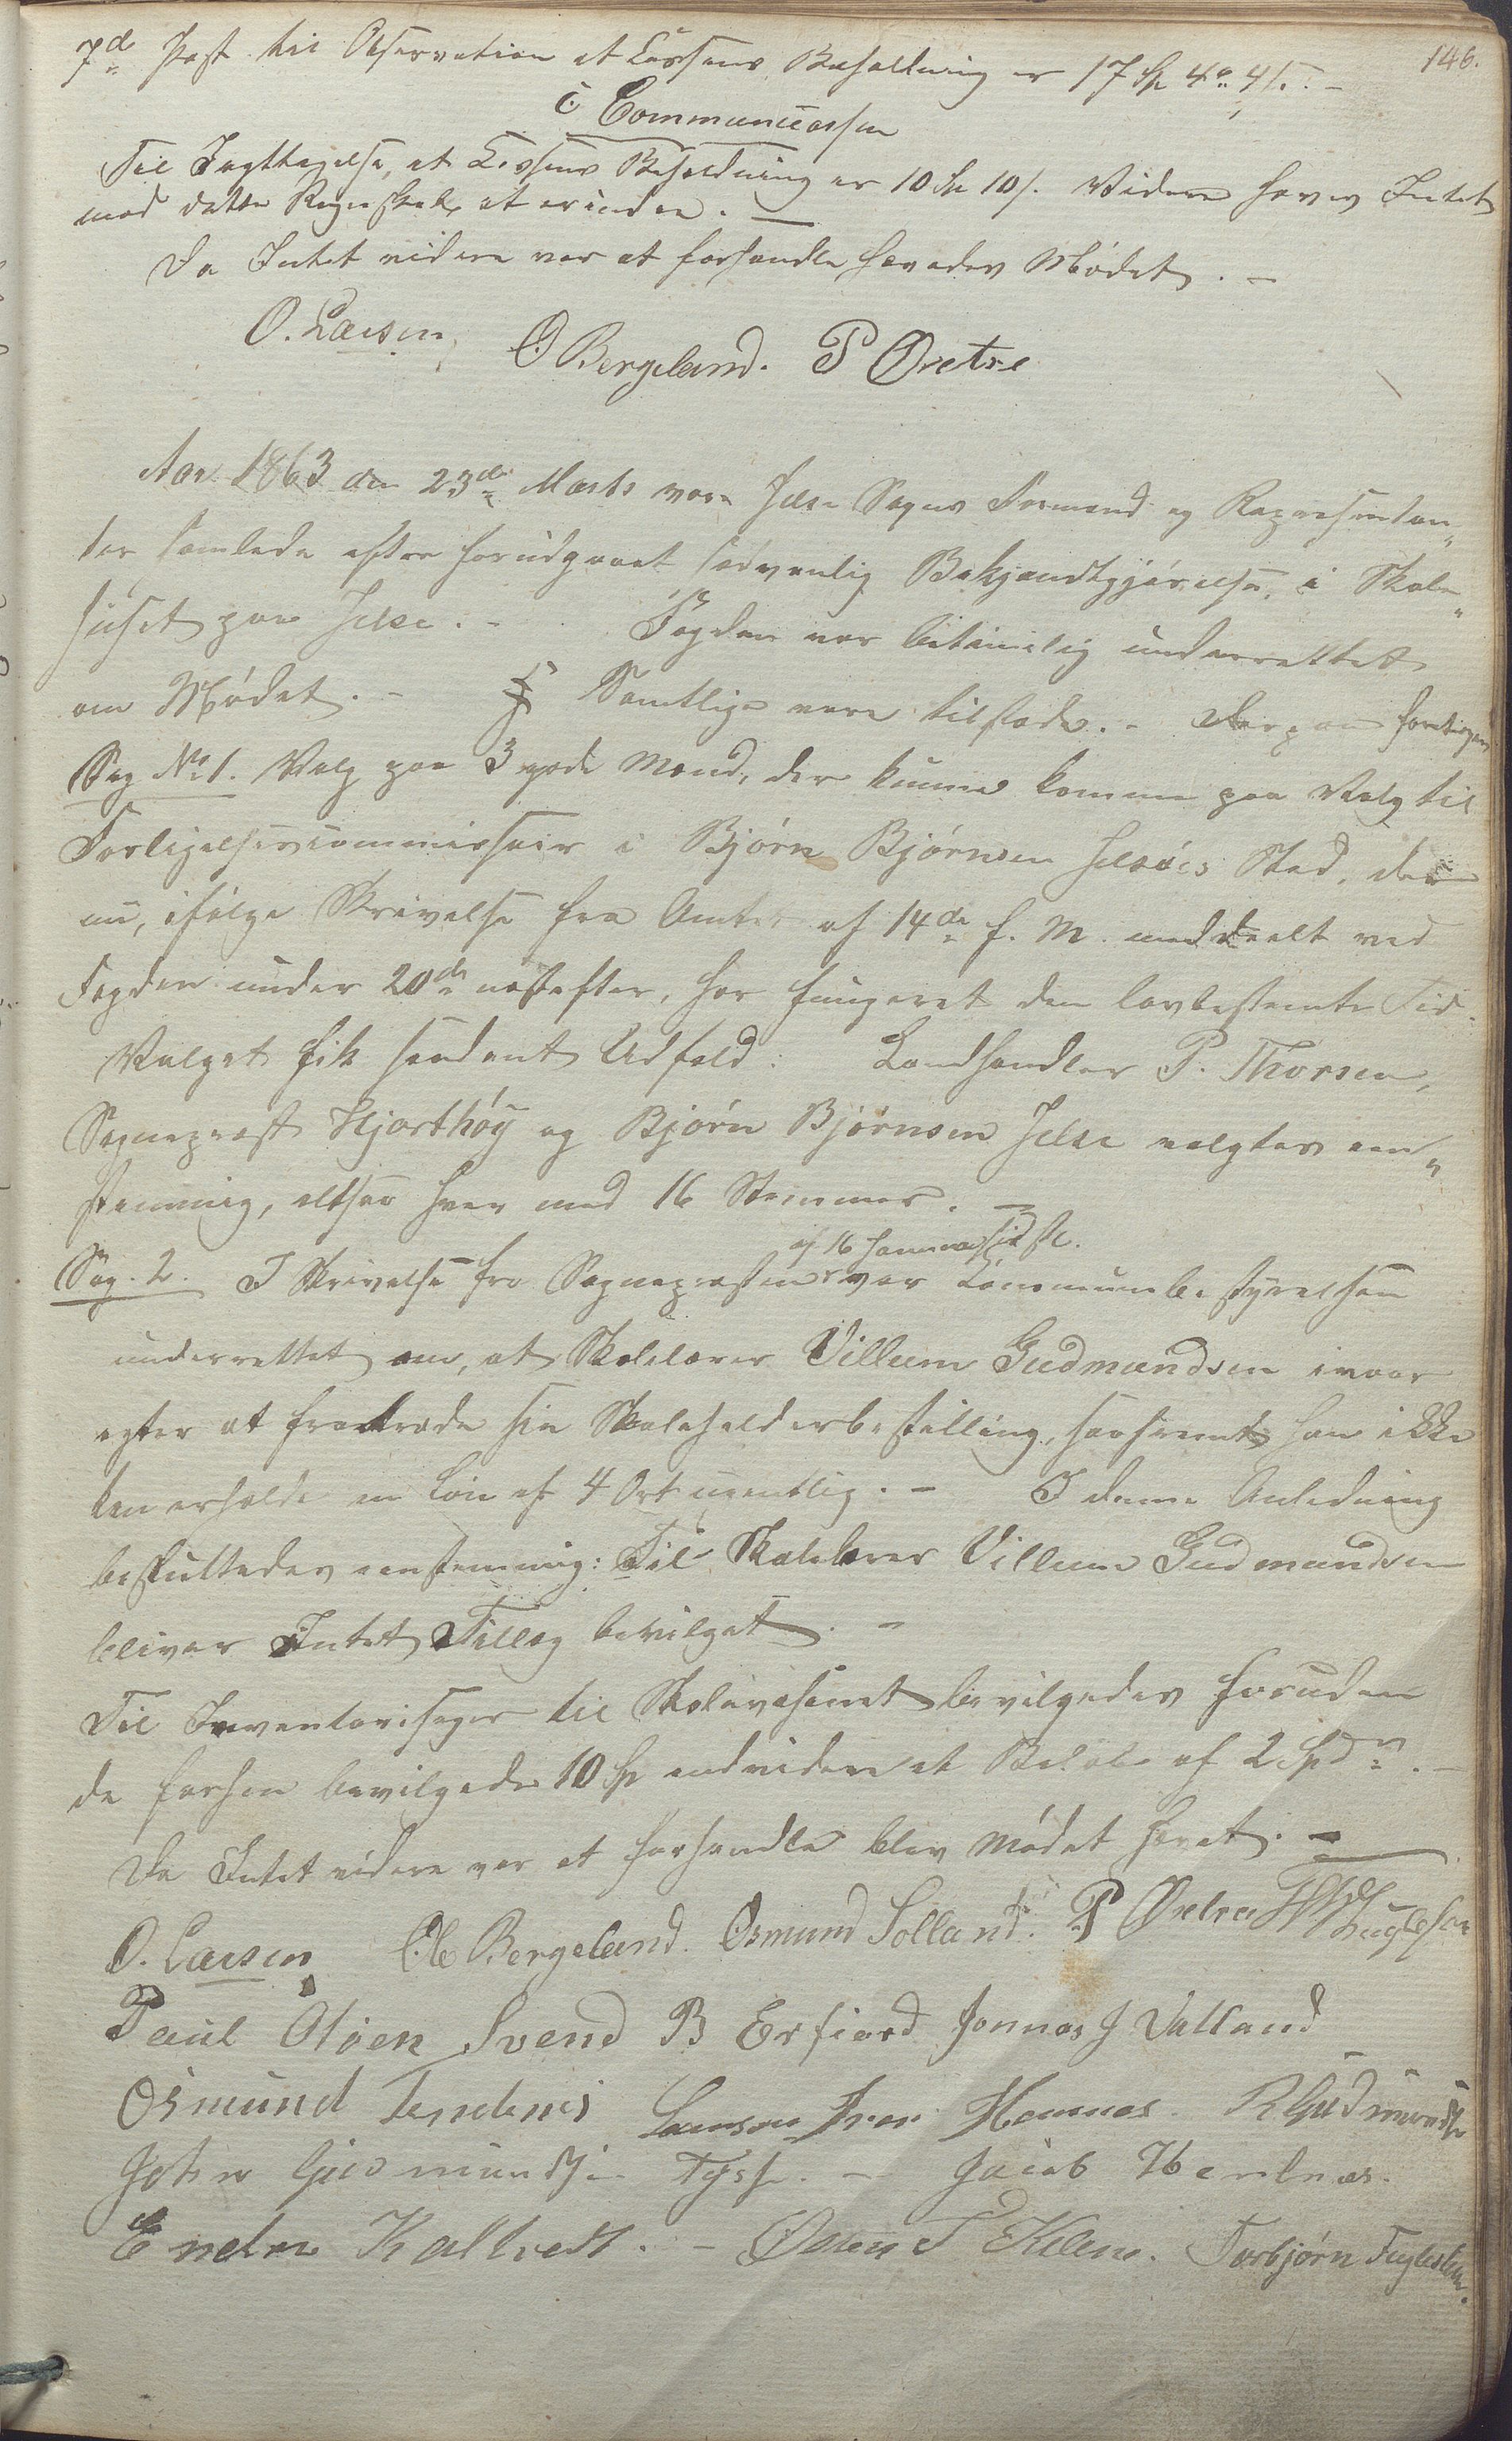 146.
7de Post til Observation at Cassens Beholdning er 17 Sp 4 o. 4 s. –
c. Communecassen
Til Iagttagelse, at Cassens Beholdning er 10 Sp 10 s. Videre haves Intet
mod dette Regnskab at erindre. —
Da Intet videre var at forhandle hævedes Mödet. –
O. Larsen, O Bergeland. P Øretse
Aar 1863 den 23de Marts vare Jelse Sogns Formænd og Repræsentan„
ter samlede efter forudgaaet sædvanlig Bekjendtgjörelse, i Skole„
huset paa Jelse. – Fogden var betimelig underrettet
om Mödet. – Samtlige vare tilstede. – Derpaa foretoges
Sag No 1. Valg paa 3 gode Mænd, der kunne komme paa Valg til
Forligelsescommissair i Bjørn Bjørnsen Jelsøes Sted, der
nu, ifölge Skrivelse fra Amtet af 14de f. M. meddeelt ved
Fogden under 20de næstefter, har fungeret den lovbestemte Tid.
Valget fik saadant Udfald: Landhandler P. Thorsen,
Sognepræst Hjorthöy og Bjørn Bjørnsen Jelse valgtes een„
stemmig, altsaa hver med 16 Stemmer. —
af 16 Januar sidstl.
Sag. 2. I Skrivelse fra Sognepræsten var Communebestyrelsen
underrettet om, at Skolelærer Villum Gudmundsen i Aar
agter at fratræde sin Skoleholderbestilling, saafremt han ikke
kan erholde en Løn af 4 Ort ugentlig. – I denne Anledning
besluttedes eenstemmig: Til Skolelærer Villum Gudmundsen
bliver Intet Tillæg bevilget. –
Til Inventariesager til Skolevæsenet bevilgedes foruden
de forhen bevilgede 10 Sp endvidere et Belöb af 2 Spdr. –
Da Intet videre var at forhandle blev Mödet hævet. –
O. Larsen, Ole Bergeland. Osmund Solland. P Øretse
Paul Oløen Svend B Erfiord Jonnas J Valland
Osmund Tendenes Samson Iver Hemnes. R Gudmundsen
John Gudmundsen Tysse. – Jacob Hemlnæs.
Endre Kaltvedt. – Østen T Kleve. Torbjørn Fuglestein.